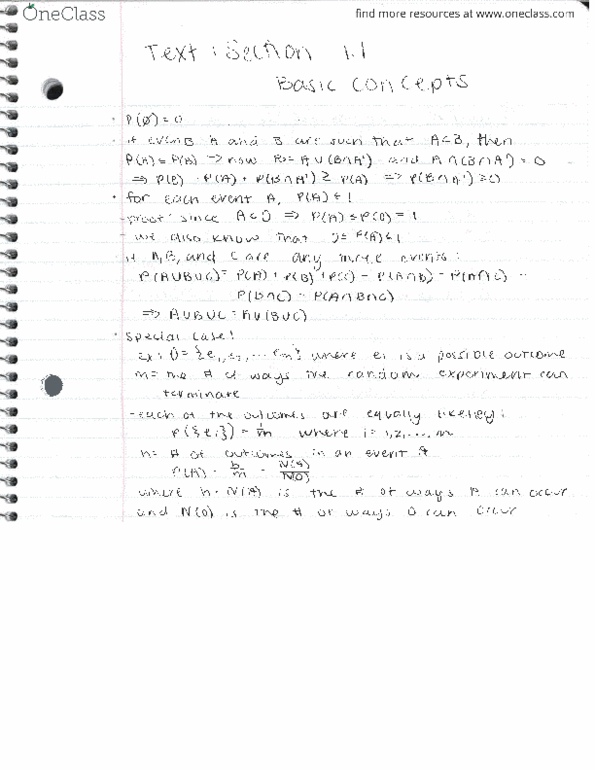 OneClass
find more resources at www.oneclass.com
Text: Section 1.1
Basic Concepts
• P(Ø)=0
• if A and B are such that A⊂B, then
P(A)≤P(A) → now B= A∪(B∩A') and A∩(B∩A') = 0
⇒ P(B) = P(A) + P(B∩A') ≥ P(A) ⇒ P(B∩A') ≥0
• for each event A, P(A) ≤ 1
-proof: since A⊂O ⇒ P(A) ≤ P(O) = 1
- we also know that 0≤ P(A)≤1
if A,B, and C are any three events:
P(A∪B∪C)= P(A) + P(B) + P(C) - P(A∩B) - P(A∩C) -
P(B∩C) + P(A∩B∩C)
⇒ A∪B∪C = A∪(B∪C)
• Special case:
Ex: O= {e1, e2, ... em} where ei is a possible outcome
m= the # of ways the random experiment can
terminate
-each of the outcomes are equally likely:
P({ei}) = 1/m where i= 1,2,...,m
h= # of outcomes in an event A
P(A) = h/m = N(A)/N(O)
where h = N(A) is the # of ways A can occur
and N(O) is the # of ways O can occur